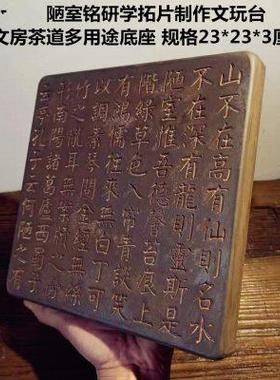 陋室铭研学拓片制作文玩台
文房茶道多用途底座 规格23*23*3厘
山不在高有仙則名水
不在深有龍則靈斯是
陋室惟吾德馨苔痕上
階綠草色入帘青談笑
有鴻儒往來無白丁可
以調素琴閱金經無絲
竹之亂耳無案牘之勞
形南陽諸葛廬西蜀子
云亭孔子云何陋之有